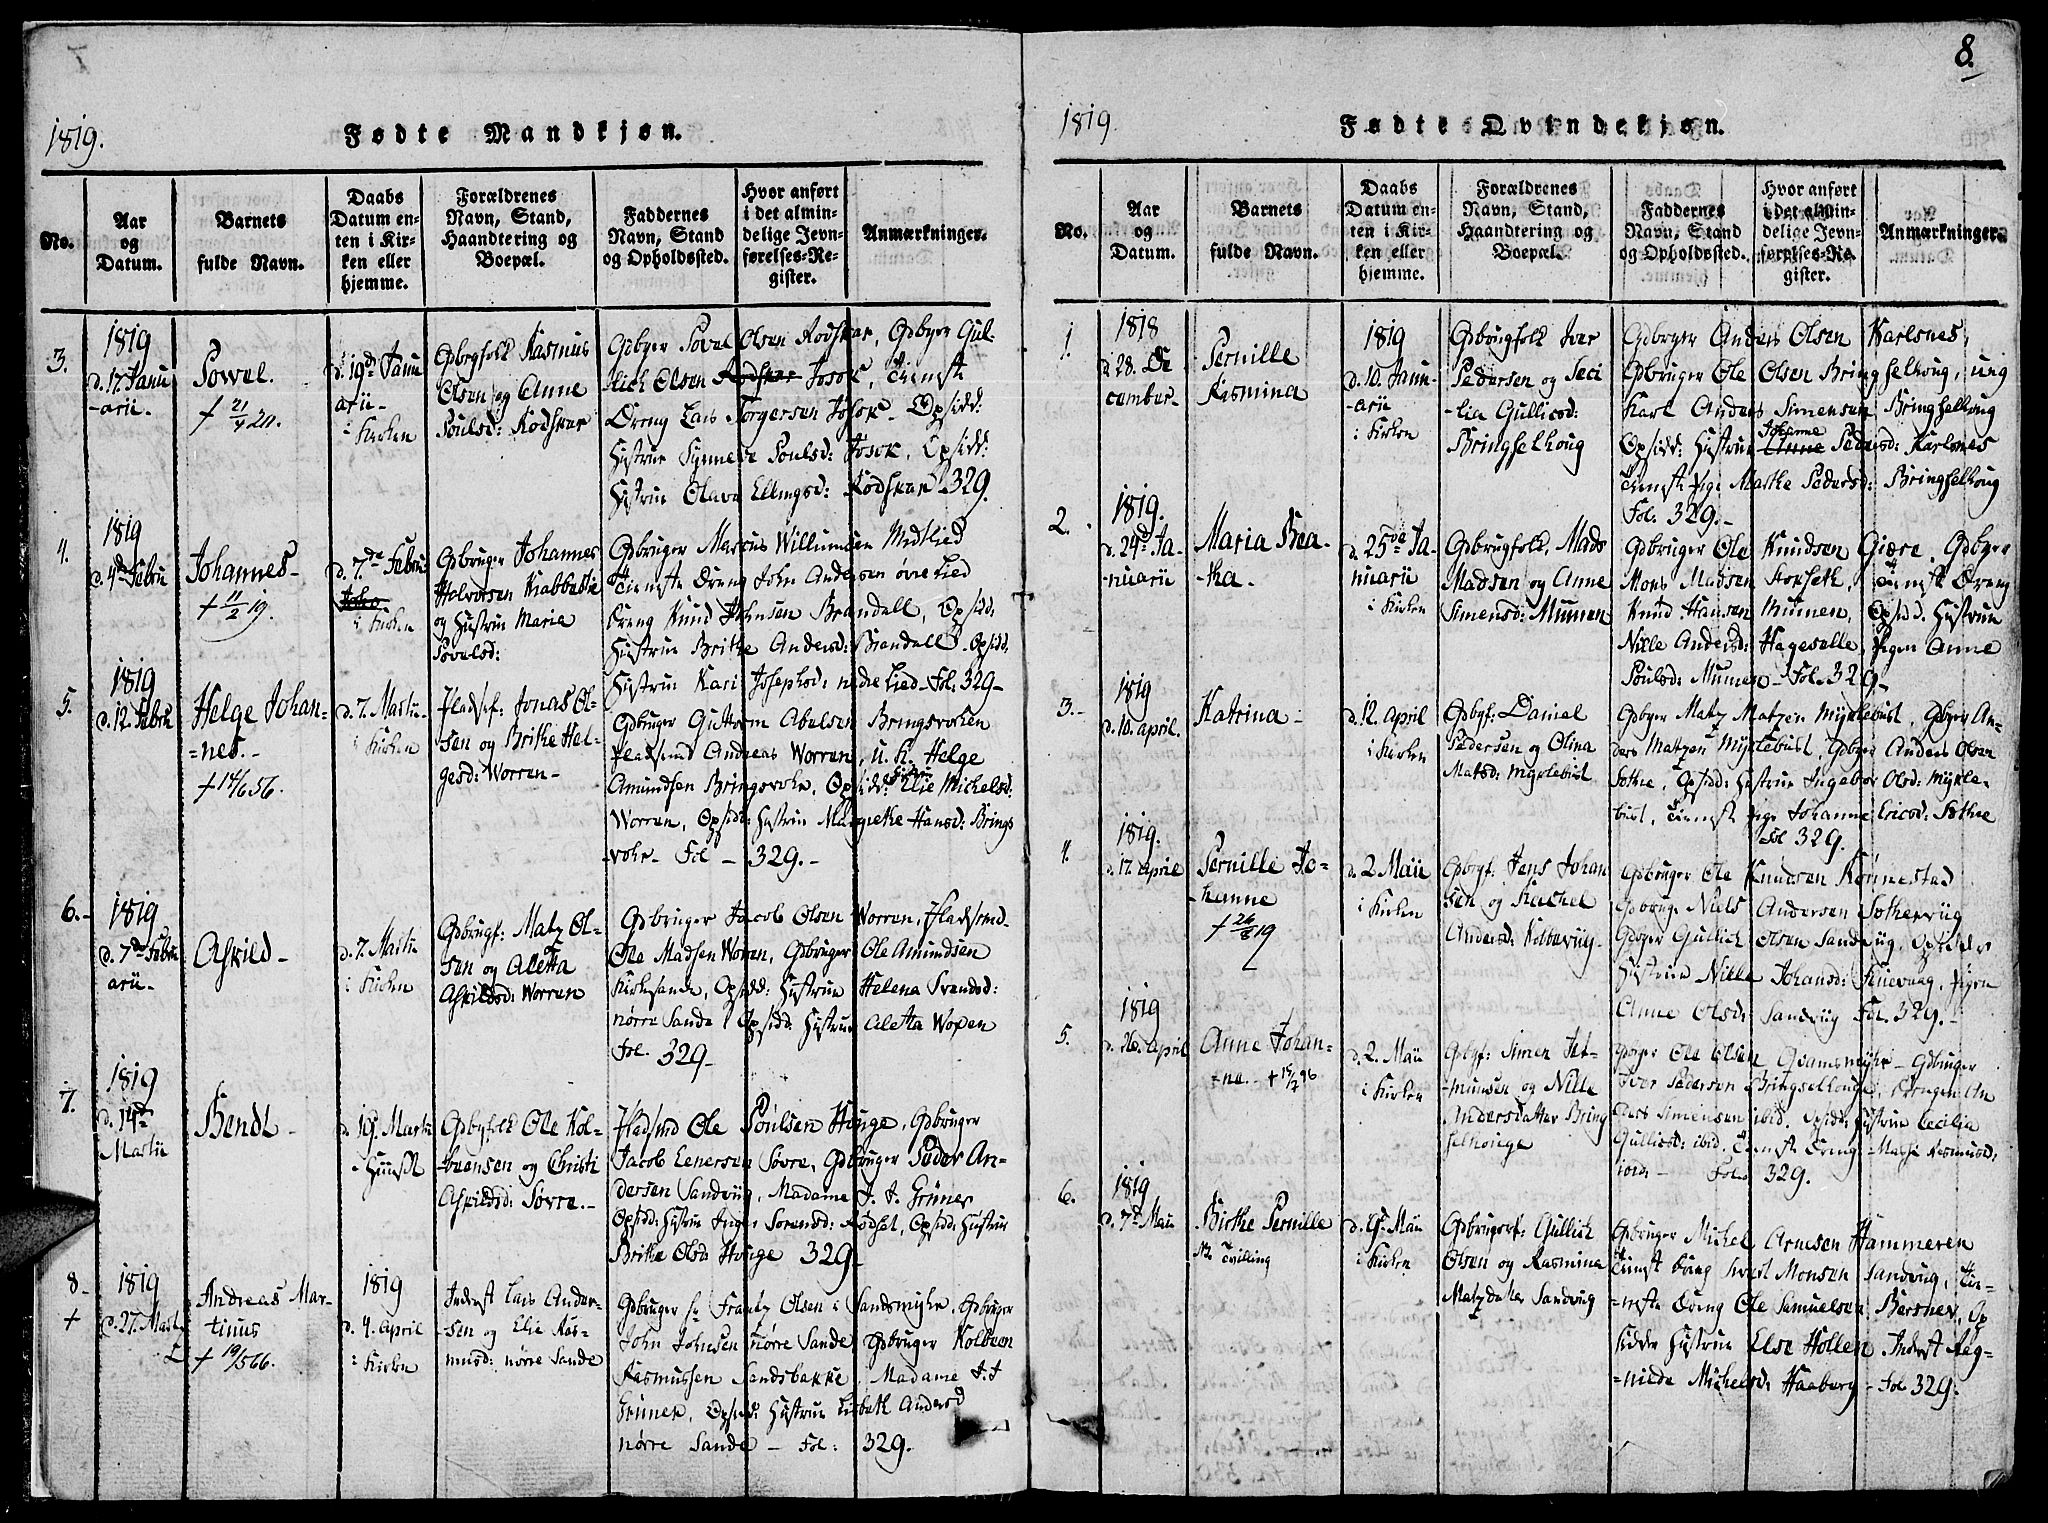 1819.
Fødte Mandkjøn.
No.
Aar og Datum.
Barnets fulde Navn.
Daabs Datum enten i Kirken eller hjemme.
Forældrenes Navn, Stand, Haandtering og Boepæl.
Faddernes Navn, Stand og Opholdssted.
Hvor anført i det almindelige Jevnførelses-Register.
Anmærkninger.
3.
1819
d. 17. Janu
-arii.
Powel.
+ 21/4 20.
d. 19de Janu
arii-
i Kirken
Gdbrgfolk Rasmus
Olsen og Anne
Poulsd: Rodskar
Gdbger Povel Olsen Rodskar, Gdbger Gul-
lich Olsen Rodskar Josok, Tienste
Dreng Lars Torgersen Josok, Opsidd:
Hustrue Synneve Poulsd: Josok, Opsidd:
Hustrue Olava Ellingsd: Rodskar 329.
4.
1819
d. 4de Febru
Johannes-
+ 11/2 19.
d. 7.de Febru
i Kirken
Gdbruger Johannes
Halvorsen Knabbestie
og Hustrue Marie
Povelsd:
Gdbruger Marcus Willumsen Midtlied
Tienste Dreng John Andersen øvre Lied
Dreng Knud Johnsen Brandall, Opsidd:
Hustrue Brithe Andersd: Brandall, Opsidd.
Hustrue Kari Josephsd: nedre Lied- Fol: 329-
5.
1819
d. 12. Febru
Helge Johan-
=nes.-
+ 14/6 56.
d. 7. Martii-
i Kirken
Pladsef: Jonas Ol-
sen og Brithe Hel-
gesd: Worren-
Gdbruger Guttorm Abelsen Bringsvohr
Pladsmd Andreas Worren, u. K. Helge
Amundsen Bringsvohr, Opsidd: Elie Mickelsd:
Worren, Opsidd: Hustrue Margrethe Hansd: Brings
-vohr- Fol - 329.-
6.-
1819
d. 7de Febru
arii-
Askild-
d. 7. Martii
i Kirken
Gdbrugf: Matz Ol-
sen og Aletta
Askildsd: Worren
Gdbruger Jacob Olsen Worren, Pladsmd-
Ole Madsen Worren, Gdbruger Ole Amundsen
Kirkesande, Opsidd: Hustrue Helena Svendsd:
nørre Sande, Opsidd. Hustrue Aletta Woxen
Fol. 329-
7.
1819
d. 14de
Martii
Bendt-
d. 19. Martii
i Huuset
Gdbgfolk Ole Kol-
-beensen og Christi
Askildsd: Søvre.-
Pladsmd Ole Poulsen Houge, Gdbruger
Jacob Eenersen Søvre, Gdbruger Peder An-
dersen Sandviig, Madame J. J. Grüner
Opsidd: Hustrue Inger Sorensd: Rødset, Opsidd: Hustrue
Brithe Olsd Houge 329-
8-
+
1819
d. 27. Martii
Andreas Mar-
tinus
+ 19/5 66.
1819
d. 4. April
i Kirken
Inderst Lars Ander-
-sen og Elie Ras-
musd: nørre Sande
Gdbruger Sr Frantz Olsen i Sandsmyhr, Gdbruger
John Johnsen nørre Sande Gdbruger Kolbeen
Rasmussen Sandsbakke, Madame J. J
Grüner, Opsidd: Hustrue Lisbeth Andersd
nørre Sande - Fol: 329.
8.
1819.
Fødte Qvindekjøn.
No.
Aar og Datum.
Barnets fulde Navn.
Daabs Datum enten i Kirken eller hjemme.
Forældrenes Navn, Stand, Haandtering og Boepæl.
Faddernes Navn, Stand og Opholdssted.
Hvor anført i det almindelige Jevnførelses-Register.
Anmærkninger.
1.
1818
d. 28. De
cember-
Pernille
Rasmina
1819
d. 10. Janu-
-arii
i Kirken
Gdbrugfolk Iver
Pedersen og Ceci
-lia Gullicsd:
Bringselhoug
Gdbryger Anders Olsen Karlsnes,
Gdbruger Ole Olsen Bringselhoug, ung
Karl Anders Simensen Bringselhoug
Opsidd: Hustrue Anne Johanne Pedersd: Karlsnes
Tienste Pige Marthe Pedersd: Bringselhoug
Fol. 329.-
2.
1819.
d. 24de Ja-
-nuarii
Maria Bea-
-tha-
d. 25de Ja-
nuarii
i Kirken
Gdbrugfolk, Mads
Madsen og Anne
Simensd: Mumen
Gdbruger Ole Knudsen Giære, Gdbger
Mons Madsen Storseth, Tienst Dreng
Knud Hansen Mumen, Opsid. Hustrue
Nille Andersd: Hageselle, Pigen Anne
Poulsd: Mumen- Fol. 329-
3.-
1819
d. 10. April.
Katrina-
d. 12. April
i Kirken
Gdbgf: Daniel
Pedersen og Olina
Matsd: Myrlebust
Gdbger Matz Matzen Myrlebust, Gdbger An-
ders Matzen Myrlebust, Gdbger Anders Olsen
Sothe, Opsidd: Hustrue Ingebor Olsd: Myrle-
bust, Tienst Pige Johanne Ericsd: Sothe
Fol 329.
4.
1819.
d. 17. April
Pernille Jo-
-hanne
+ 26/8 19
d. 2 Maii
i Kirken
Gdbrgf: Jens Johan
sen og Rachel
Andersd: Kolbeviig-
Gdbruger Ole Knudsen Rønnestad
Gdbruge Niels Andersen Sotheviig
Gdbger Gullich Olsen Sandviig, Opsidder
Hustrue Nille Johansd: Skuevaag, Pigen
Anne Olsd: Sandviig Fol. 329.-
5.
1819
d. 26. April
Anne Johan-
=na.- + 15/2 96
d. 2. Maii
i Kirken
Gdbgf: Simen
-munsen og Nille
Andersdatter Bring
selhouge
Gdbger Ole Olsen Qvamsmyhr- Gdbruger
Iver Pedersen Bringselhouge, Drengen An
ders Simensen ibid. Opsidd: Hustrue Cecilia
Gullicsd: ibid, Tienst Dreng Rasmusd:
ibid.- Fol. 329.
6.
1819
d. 7de Maii
Birthe Pernille
Nb Tvilling
d. 9. Maii
i Kirken
Gdbrugerf: Gullich
Olsen og Rasmina
Matzdatter Sandviig
Gdbruger Michel Arnesen Hammeren
Tienst Dreng Monsen Sandviig, Tie-
=neste Dreng Ole Samuelsen Børsner, Op
sidder Hustrue Else Hollen, Inderst Rag-
=nilde Michelsd: Haaberg- Fol 329.